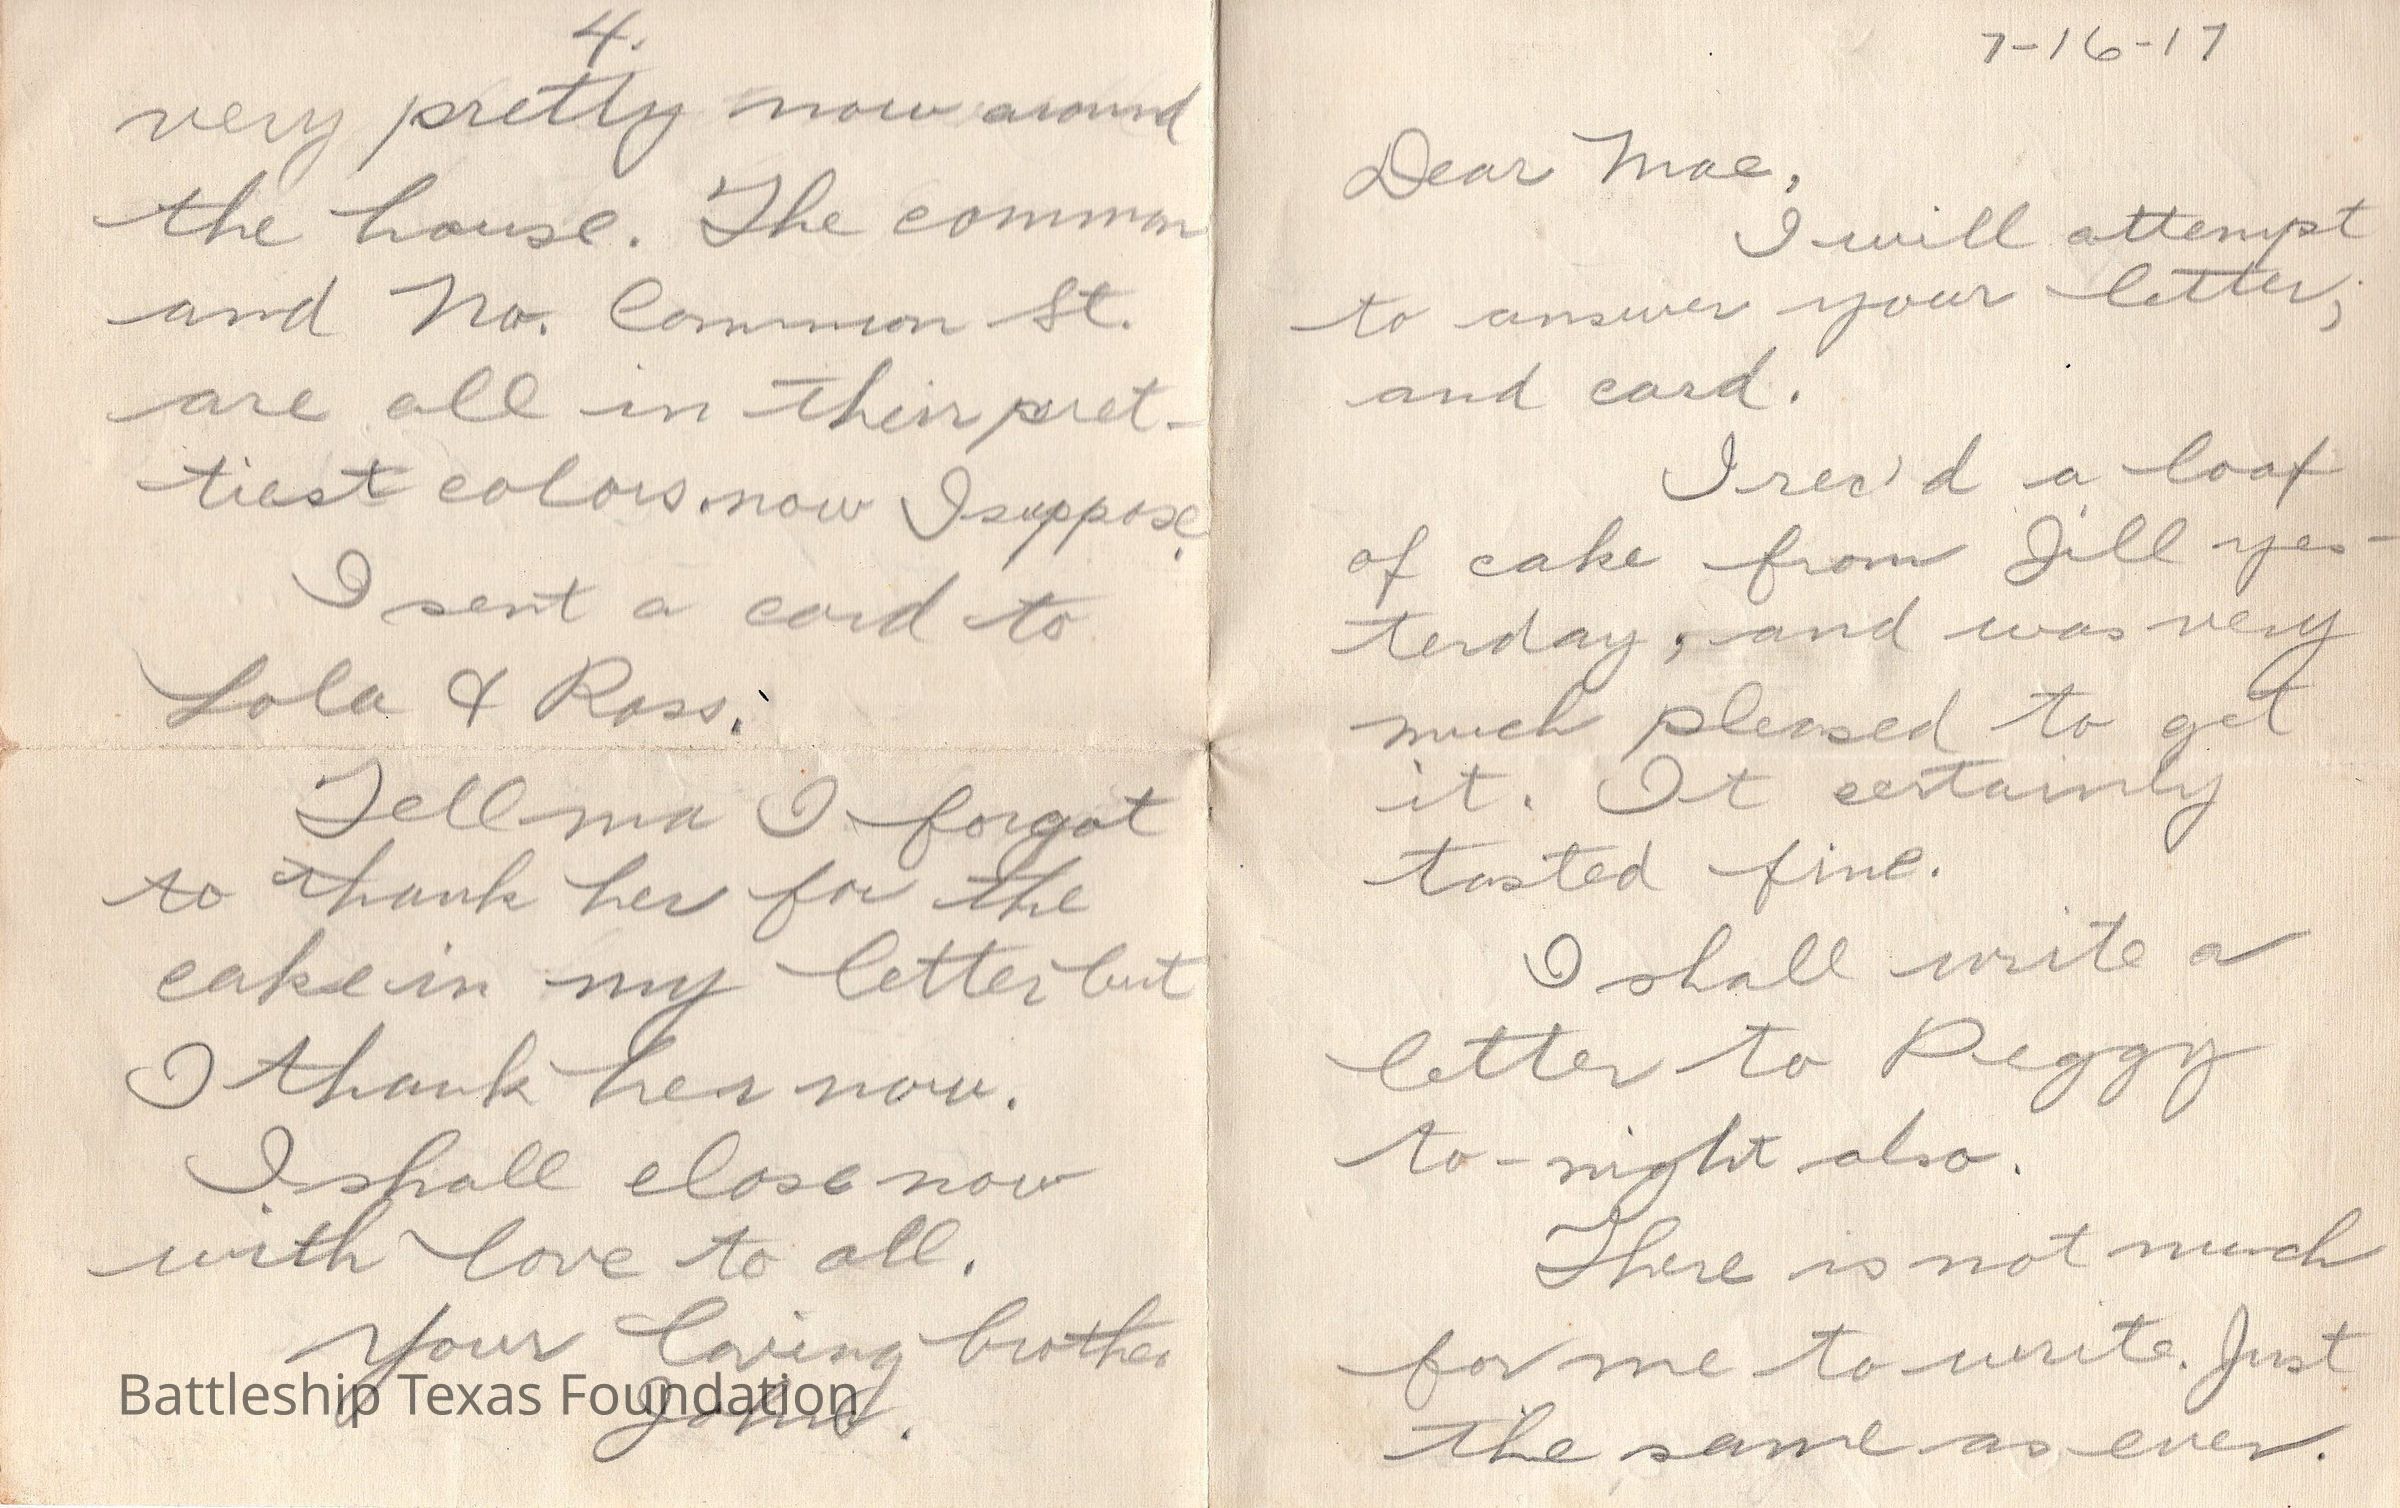 4.
very pretty now around
the house. The common
and No. Common St.
are all in their pret-
tiest colors now I suppose.
I sent a card to
Lola & Ross.
Tell ma I forgot
to thank her for the
cake in my letter but
I thank her now.
I shall close now
with love to all.
Your loving brother
John.
Battleship Texas Foundation
7-16-17
Dear Mae,
I will attempt
to answer your letter,
and card.
I rec'd a loaf
of cake from Jill yes-
terday, and was very
much pleased to get
it. It certainly
tasted fine.
I shall write a
letter to Peggy
to-night also.
There is not much
for me to write. Just
the same as ever.